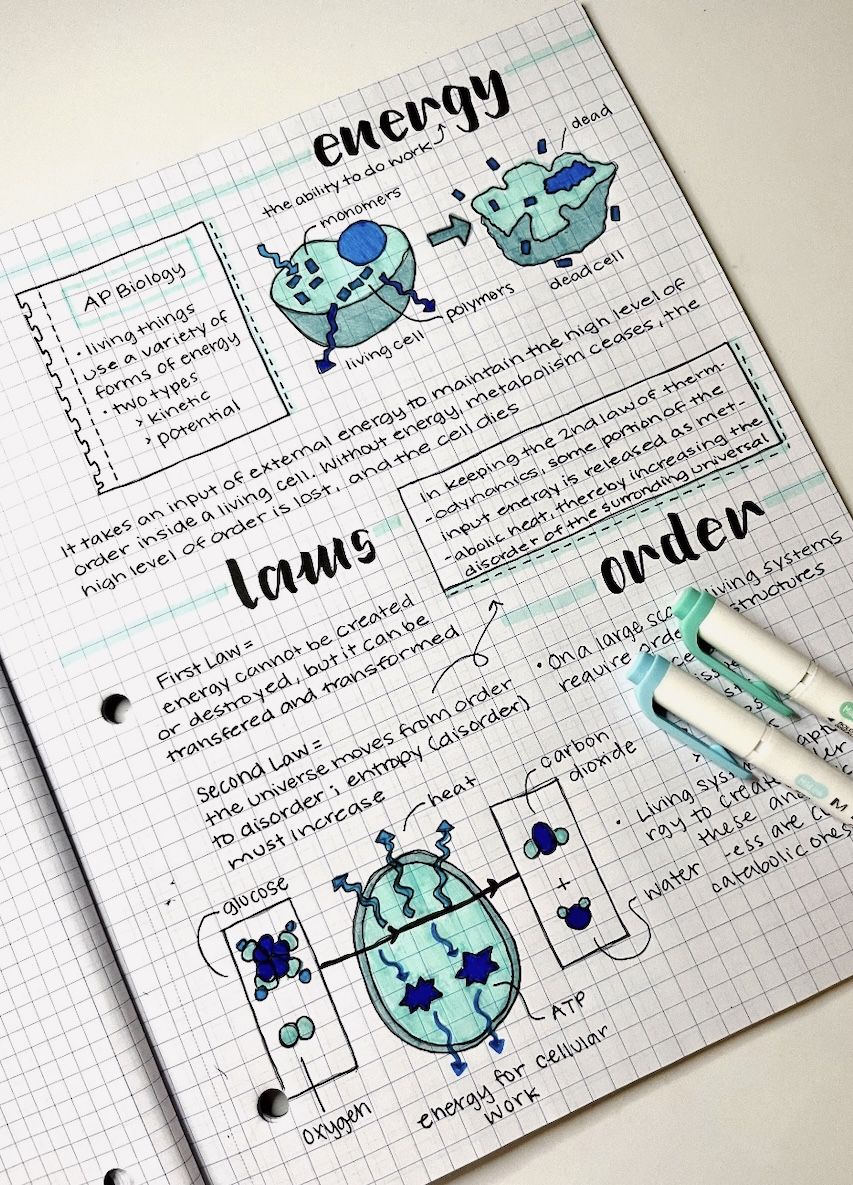 energy
the ability to do work
monomers
dead
polymers
living cell
dead cell
AP Biology
• living things
use a variety of
forms of energy
• two types
> kinetic
> potential
It takes an input of external energy to maintain the high level of
order inside a living cell. Without energy, metabolism ceases, the
high level of order is lost, and the cell dies
In keeping the 2nd law of therm-
-odynamics, some portion of the
input energy is released as met-
-abolic heat, thereby increasing the
disorder of the surronding universal
laws
First Law =
energy cannot be created
or destroyed, but it can be
transfered and transformed
Second Law =
the universe moves from order
to disorder; entropy (disorder)
must increase
order
• On a large living systems
require structures
• Living
rgy to
these
-ess are
catabolic ones
glucose
oxygen
heat
carbon
dioxide
+
water
ATP
energy for cellular
work
M